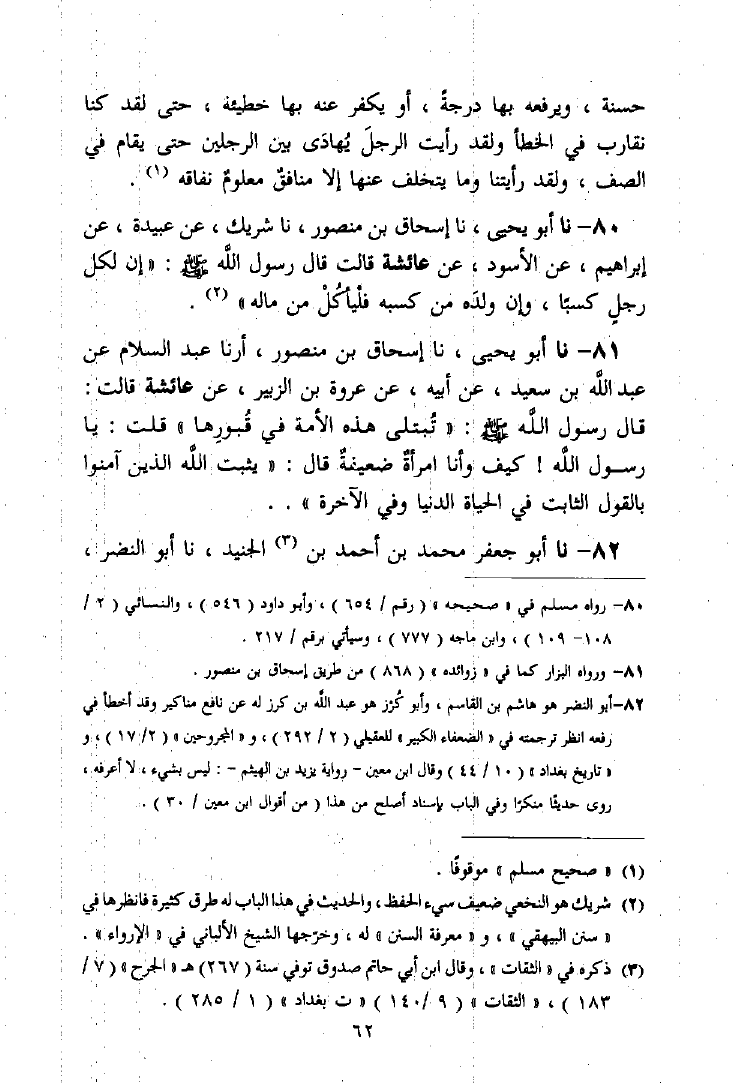 حسنة ، ويرفعه بها درجةً ، أو يكفر عنه بها خطيئة ، حتى لقد كنا
نقارب في الخطأ ولقد رأيت الرجلَ يُهادَى بين الرجلين حتى يقام في
الصف ، ولقد رأيتنا وما يتخلف عنها إلا منافقٌ معلومٌ نفاقه (١) .
٨٠– نا أبو يحيى ، نا إسحاق بن منصور ، نا شريك ، عن عبيدة ، عن
إبراهيم ، عن الأسود ، عن عائشة قالت قال رسول اللَّه ﷺ : «إن لكل
رجلٍ كسبًا ، وإن ولدَه من كسبه فلْيأكُلْ من ماله» (٢) .
٨١– نا أبو يحيى ، نا إسحاق بن منصور ، أرنا عبد السلام عن
عبد اللَّه بن سعيد ، عن أبيه ، عن عروة بن الزبير ، عن عائشة قالت :
قال رسول اللَّه ﷺ : « تُبتلى هذه الأمة في قُبورِها » قلت : يا
رسول اللَّه ! كيف وأنا امرأةٌ ضعيفةٌ قال : « يثبت اللَّه الذين آمنوا
بالقول الثابت في الحياة الدنيا وفي الآخرة » . .
٨٢– نا أبو جعفر محمد بن أحمد بن (٣) الجنيد ، نا أبو النضر ،
٨٠– رواه مسلم في « صحيحه » ( رقم / ٦٥٤ ) ، وأبو داود ( ٥٤٦ ) ، والنسائي ( ٢ /
١٠٨– ١٠٩ ) ، وابن ماجه ( ٧٧٧ ) ، وسيأتي برقم / ٢١٧ .
٨١– ورواه البزار كما في « زوائده » ( ٨٦٨ ) من طريق إسحاق بن منصور .
٨٢–أبو النضر هو هاشم بن القاسم ، وأبو كُرَز هو عبد اللَّه بن كرز له عن نافع مناكير وقد أخطأ في
رفعه انظر ترجمته في « الضعفاء الكبير » للعقيلي ( ٢ / ٢٩٢ ) ، و « المجروحين » ( ٢/ ١٧ ) ، و
« تاريخ بغداد » ( ١٠ / ٤٤ ) وقال ابن معين – رواية يزيد بن الهيثم – : ليس بشيء ، لا أعرفه ،
روى حديثًا منكرًا وفي الباب بإسناد أصلح من هذا ( من أقوال ابن معين / ٣٠ ) .
(١) « صحيح مسلم » موقوفًا .
(٢) شريك هو النخعي ضعيف سيء الحفظ ، والحديث في هذا الباب له طرق كثيرة فانظرها في
« سنن البيهقي » ، و « معرفة السنن » له ، وخرّجها الشيخ الألباني في « الإرواء » .
(٣) ذكره في « الثقات » ، وقال ابن أبي حاتم صدوق توفي سنة (٢٦٧) هـ « الجرح » ( ٧ /
١٨٣ ) ، « الثقات » ( ٩ /١٤٠ ) « ت بغداد » ( ١ / ٢٨٥ ) .
٦٢